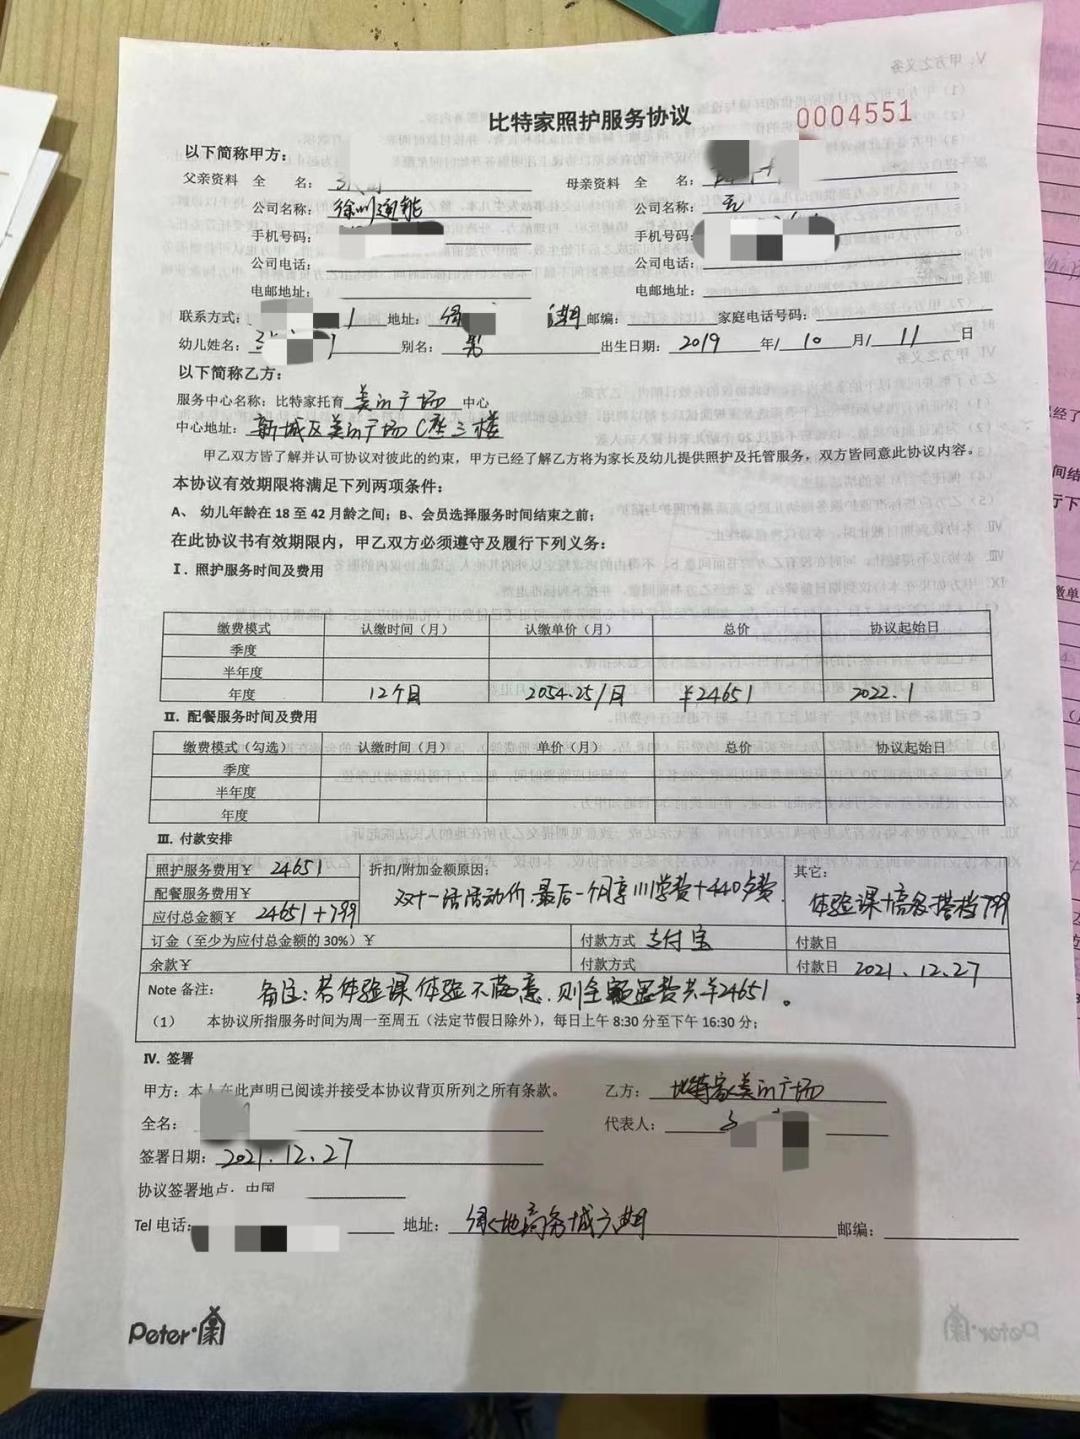 比特家照护服务协议
0004551
以下简称甲方：
父亲资料 全 名： 母亲资料 全 名：
公司名称：徐州通能 公司名称：无
手机号码： 手机号码：
公司电话： 公司电话：
电邮地址： 电邮地址：
联系方式： 地址：绿 期 邮编： 家庭电话号码：
幼儿姓名： 别名：男 出生日期：2019 年/ 10 月/ 11 日
以下简称乙方：
服务中心名称：比特家托育 美的广场 中心
中心地址：新城区美的广场C座三楼
甲乙双方皆了解并认可协议对彼此的约束，甲方已经了解乙方将为家长及幼儿提供照护及托管服务，双方皆同意此协议内容。
本协议有效期限将满足下列两项条件：
A、 幼儿年龄在 18 至 42 月龄之间；B、会员选择服务时间结束之前；
在此协议书有效期限内，甲乙双方必须遵守及履行下列义务：
I. 照护服务时间及费用
缴费模式 认缴时间（月） 认缴单价（月） 总价 协议起始日
季度
半年度
年度 12个月 2054.25/月 ¥24651 2022.1
II. 配餐服务时间及费用
缴费模式（勾选） 认缴时间（月） 单价（月） 总价 协议起始日
季度
半年度
年度
III. 付款安排
照护服务费用¥ 24651 折扣/附加金额原因： 其它：
配餐服务费用¥ 双十一活动价.最后一个月享111学费+440点费. 体验课+高多搭档799
应付总金额¥ 24651+799
订金（至少为应付总金额的 30%）¥ 付款方式 支付宝 付款日
余款¥ 付款方式 付款日 2021.12.27
Note 备注： 备注：若体验课体验不满意.则全额退费共¥24651。
（1） 本协议所指服务时间为周一至周五（法定节假日除外），每日上午 8:30 分至下午 16:30 分；
IV. 签署
甲方：本人在此声明已阅读并接受本协议背页所列之所有条款。 乙方：比特家美的广场
全名： 代表人：
签署日期：2021.12.27
协议签署地点：中国
Tel 电话： 地址：绿地商务城六期 邮编：
Peter·家